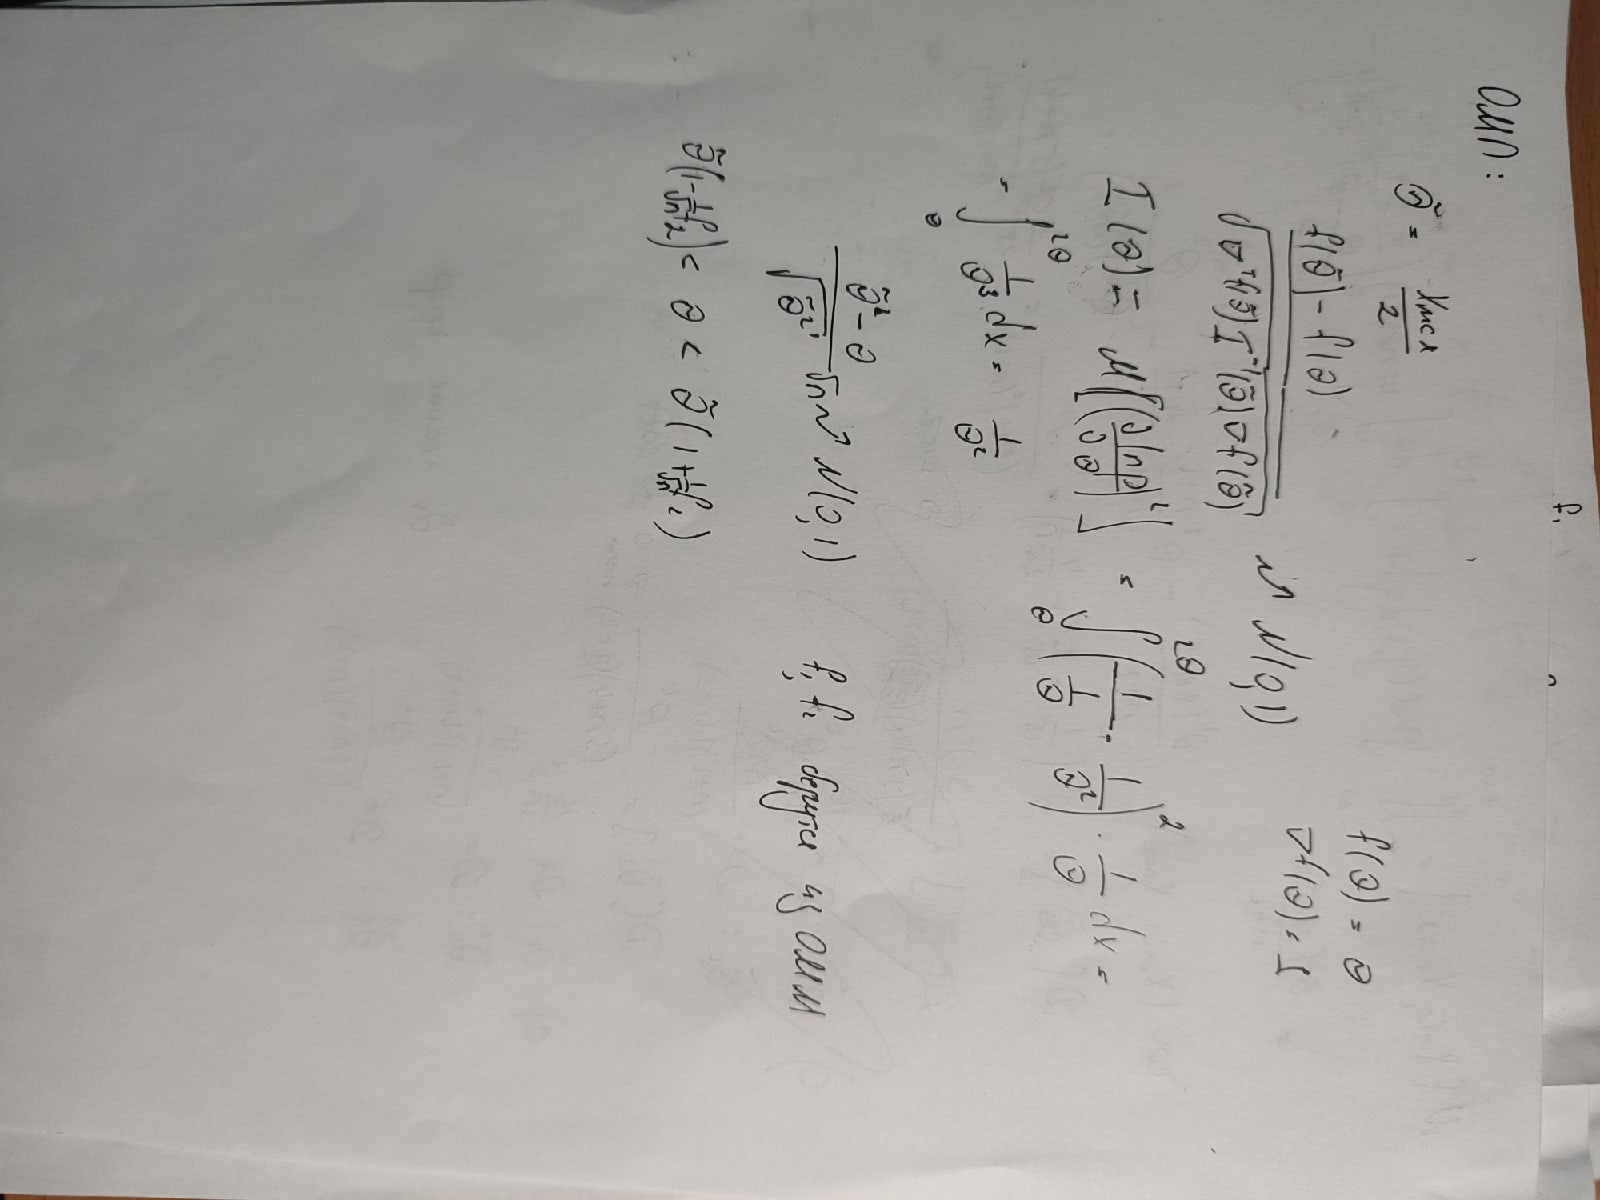 f₁
ОМП:
θ̃ = Xмах / 2
f(θ) = θ
∇f(θ) = 1
(f(θ̃) - f(θ)) / √(∇ᵀf(θ̃) I⁻¹(θ̃) ∇f(θ̃)) ~ N(0,1)
I(θ) = M[(∂lnp/∂θ)²] = ∫_θ^{2θ} (1/(1/θ) · 1/θ²)² · 1/θ dx =
= ∫_θ^{2θ} 1/θ³ dx = 1/θ²
(θ̃ - θ) / √(θ̃²) √n ~ N(0,1) f₁ f₂ берутся из ОММ
θ̃(1 - 1/√n f₂) < θ < θ̃(1 + 1/√n f₂)